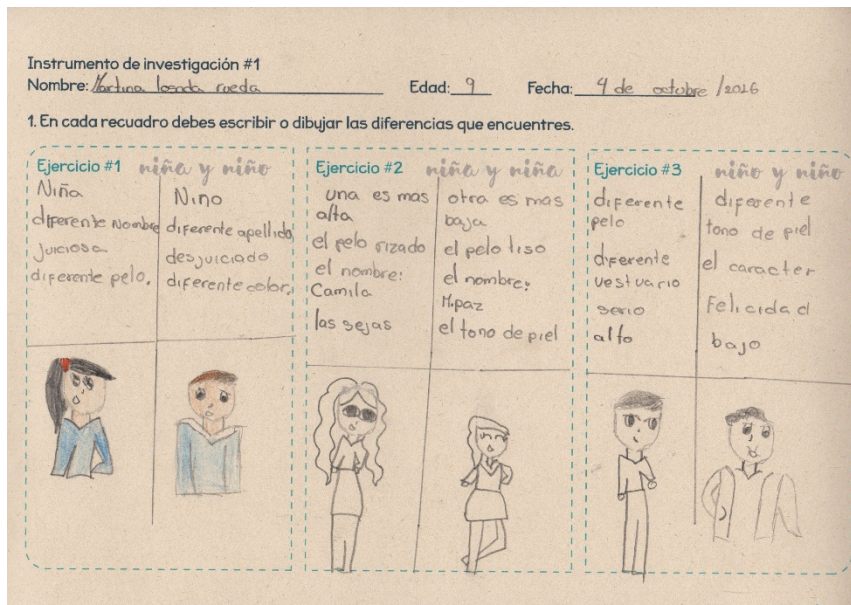 Instrumento de investigación #1
Nombre: Martina rueda
Edad: 9
Fecha: 4 de octubre /2016
1. En cada recuadro debes escribir o dibujar las diferencias que encuentres.
Ejercicio #1 niña y niño
Niña
diferente Nombre
juiciosa
diferente pelo.
Nino
diferente apellido
desjuiciado
diferente color.
Ejercicio #2 niña y niña
una es mas
alta
el pelo rizado
el nombre:
Camila
las sejas
otra es mas
baja
el pelo liso
el nombre:
M.paz
el tono de piel
Ejercicio #3 niño y niño
diferente
pelo
diferente
vestuario
serio
alto
diferente
tono de piel
el caracter
Felicidad
bajo